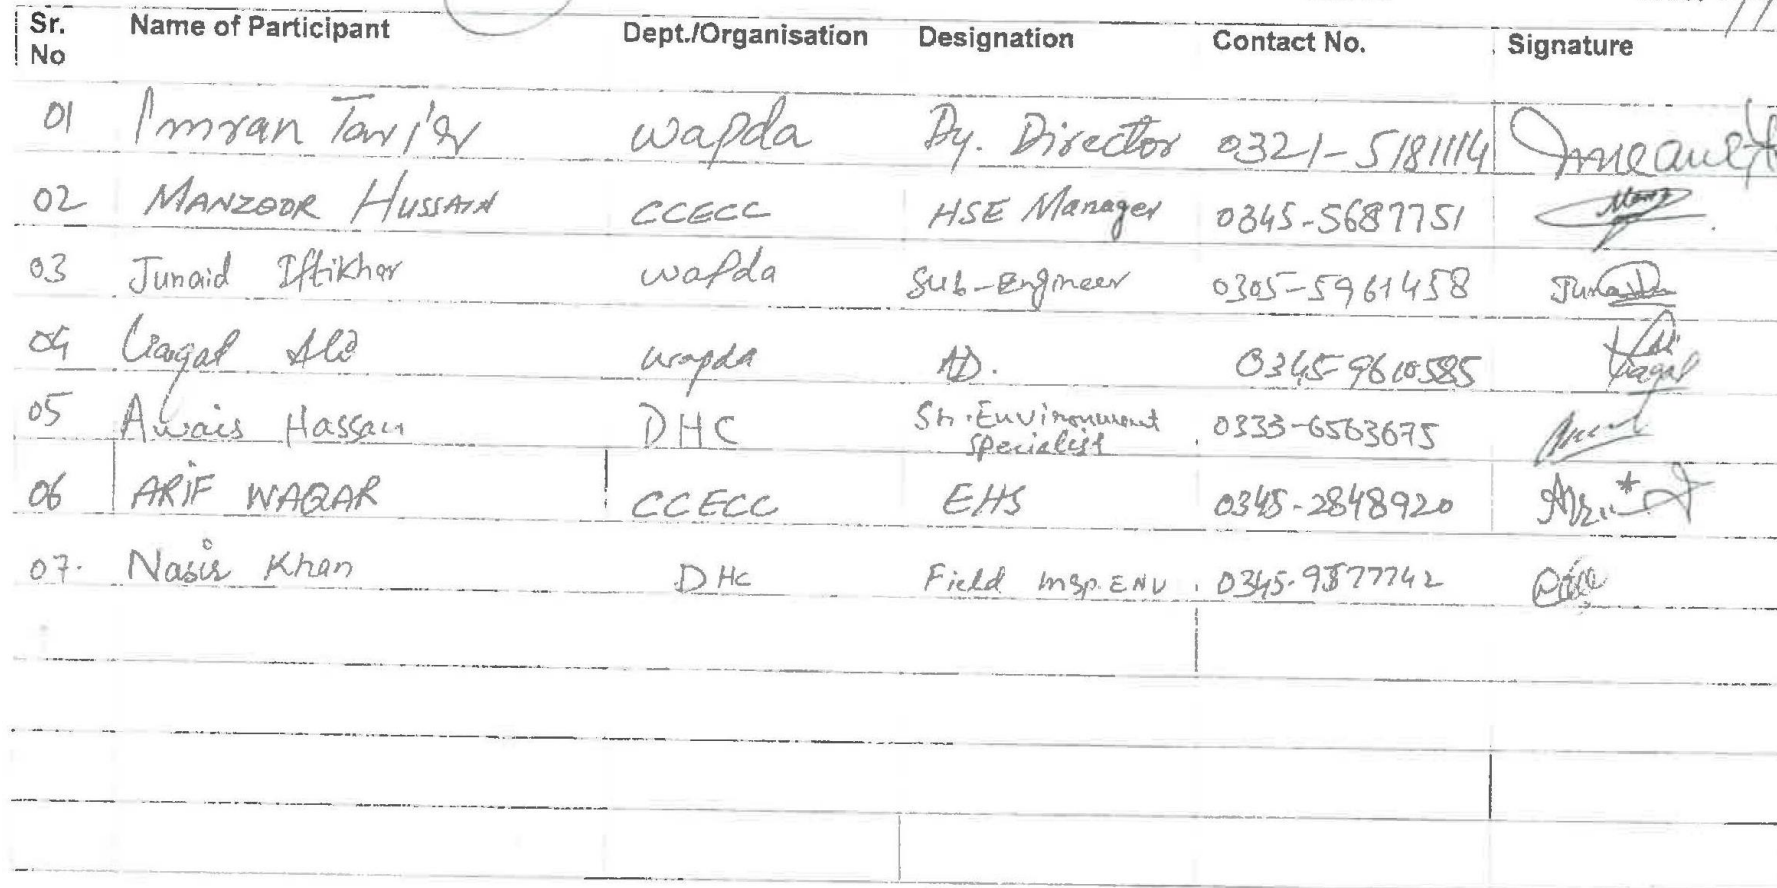 Sr. No Name of Participant Dept./Organisation Designation Contact No. Signature
01 Imran Tariq wapda Dy. Director 0321-5181114
02 MANZOOR HUSSAIN CCECC HSE Manager 0345-5687751
03 Junaid Iftikhar wapda Sub-Engineer 0305-5961458
04 Liaqat Ali wapda AD. 0345-9610585
05 Awais Hassan DHC Sr. Environment Specialist 0333-6563675
06 ARIF WAQAR CCECC EHS 0345-2848920
07. Nasir Khan DHC Field Insp. ENV 0345-9877742